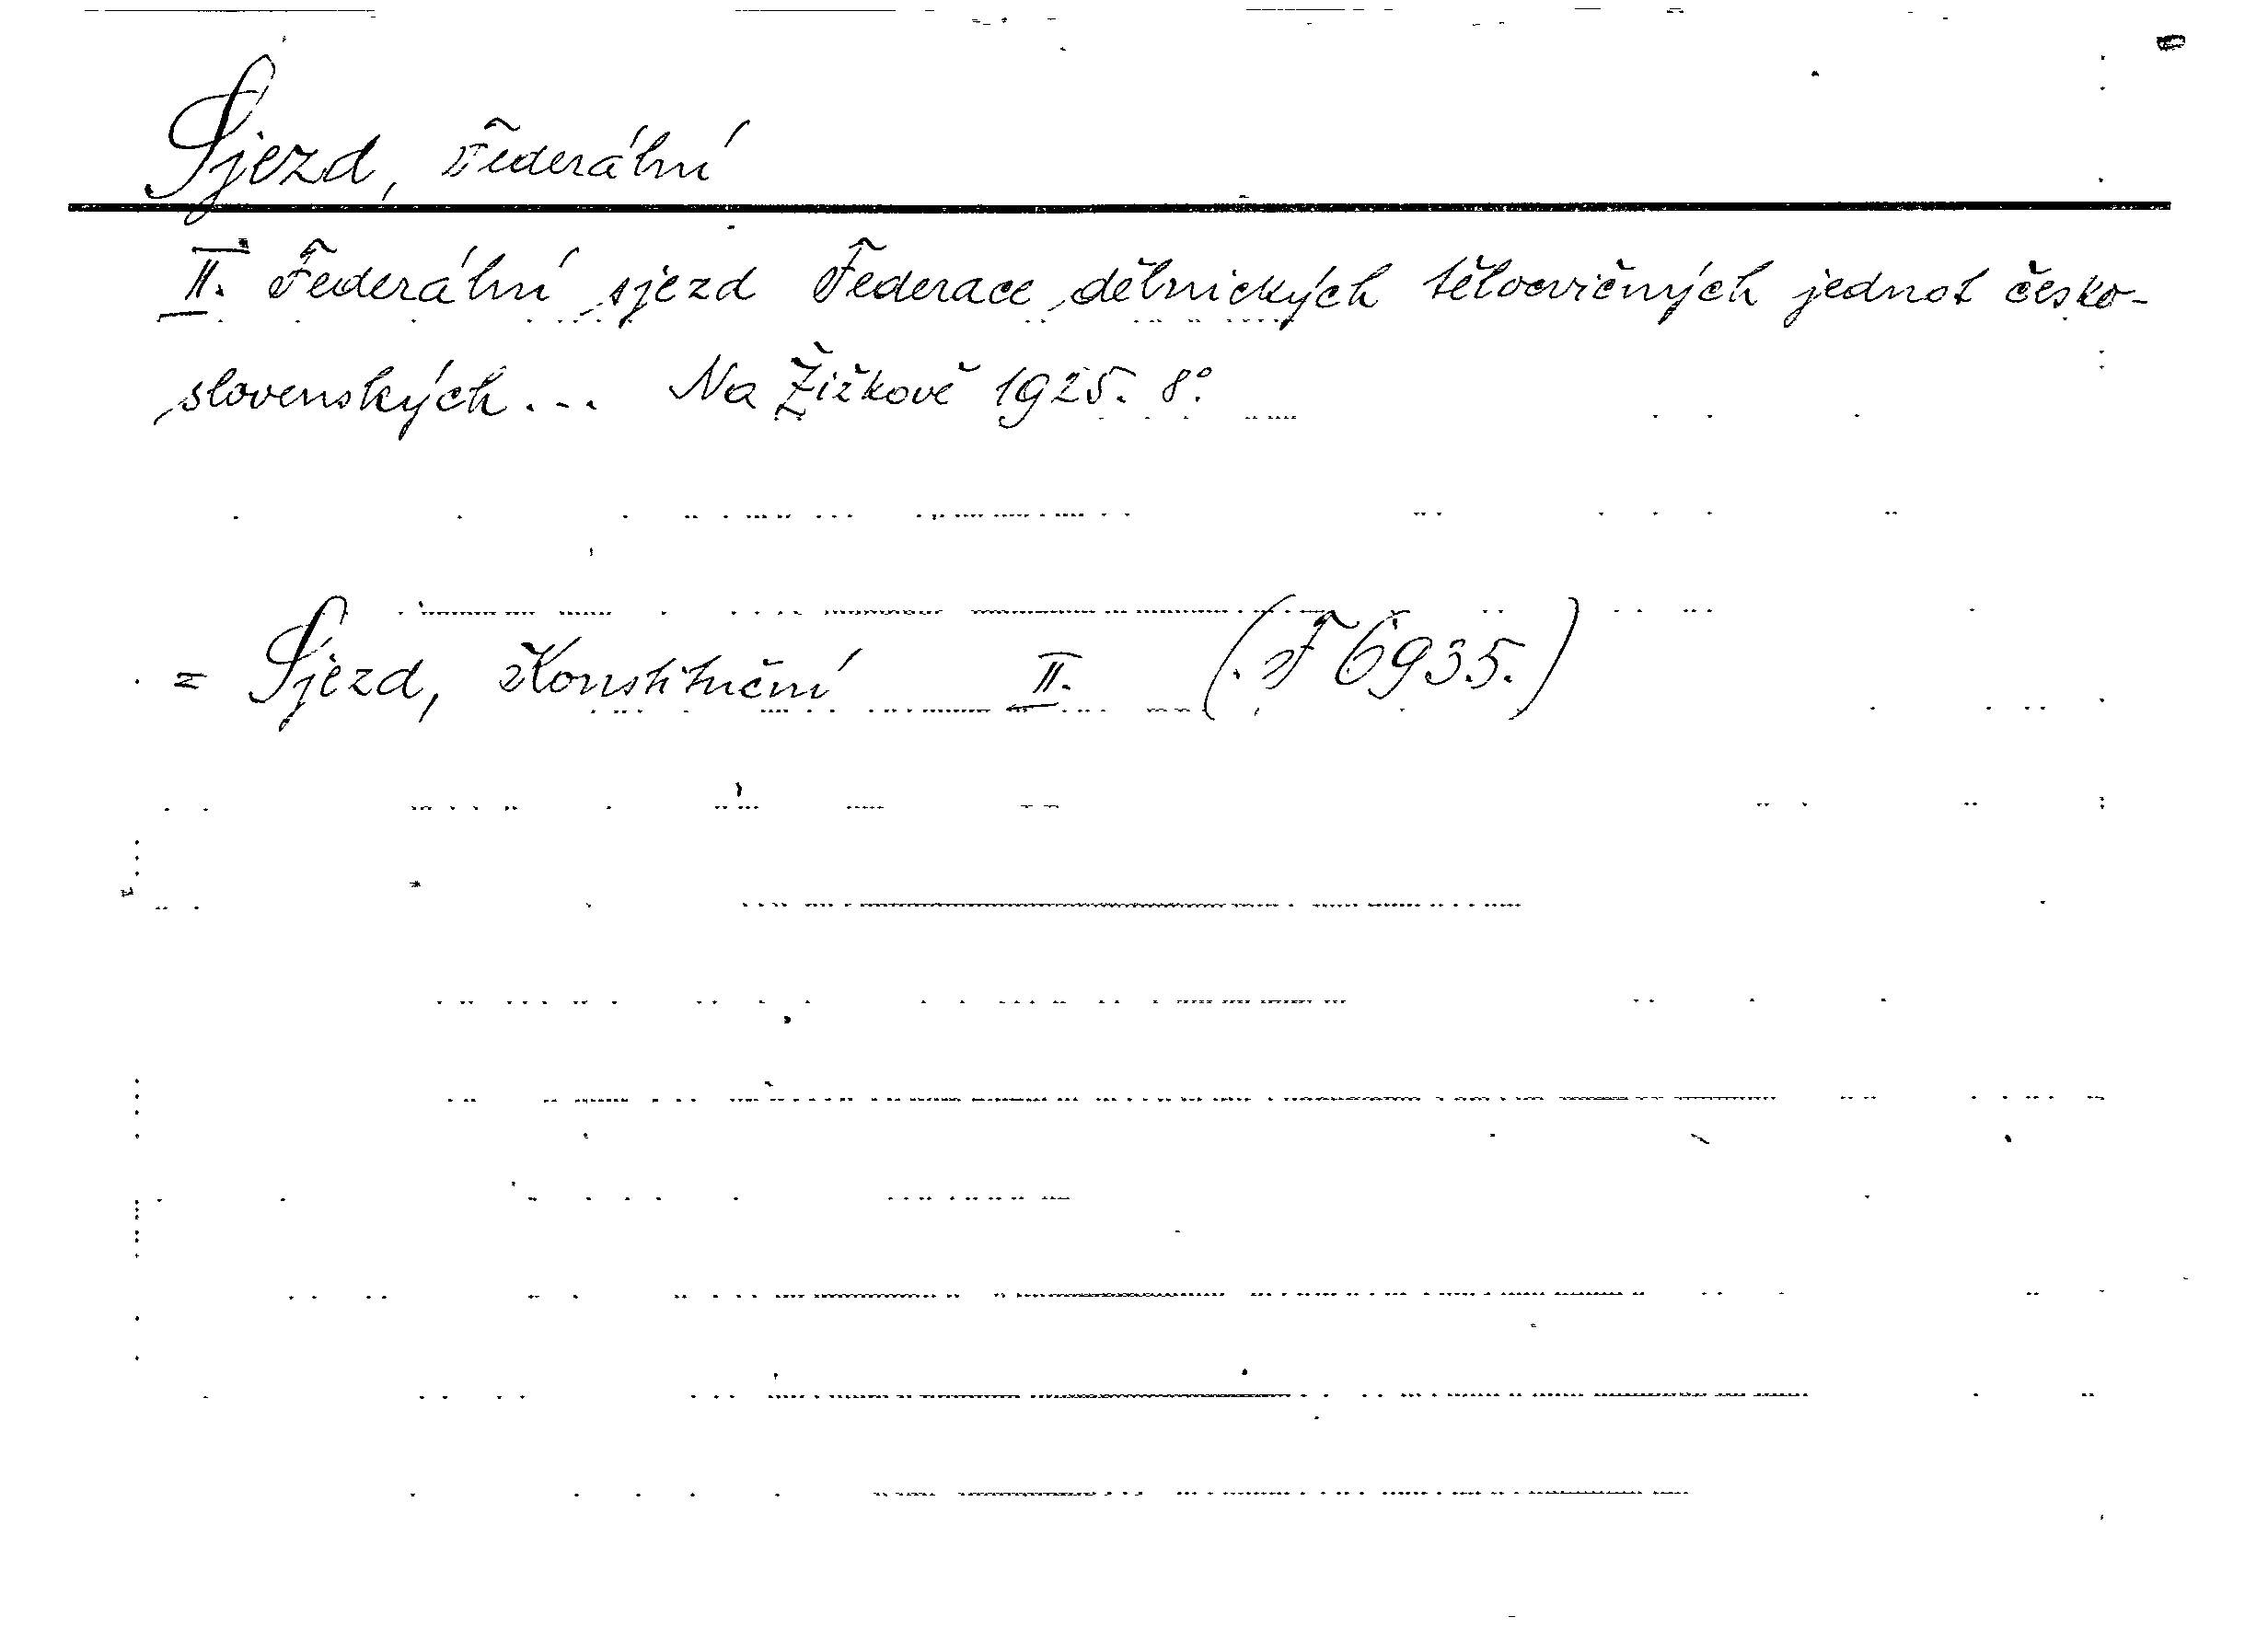 Sjezd, Federální
II. Federální sjezd Federace dělnických tělocvičných jednot česko-
slovenských... Na Žižkově 1925. 8°.
= Sjezd, Konstituční II. (F 6935.)